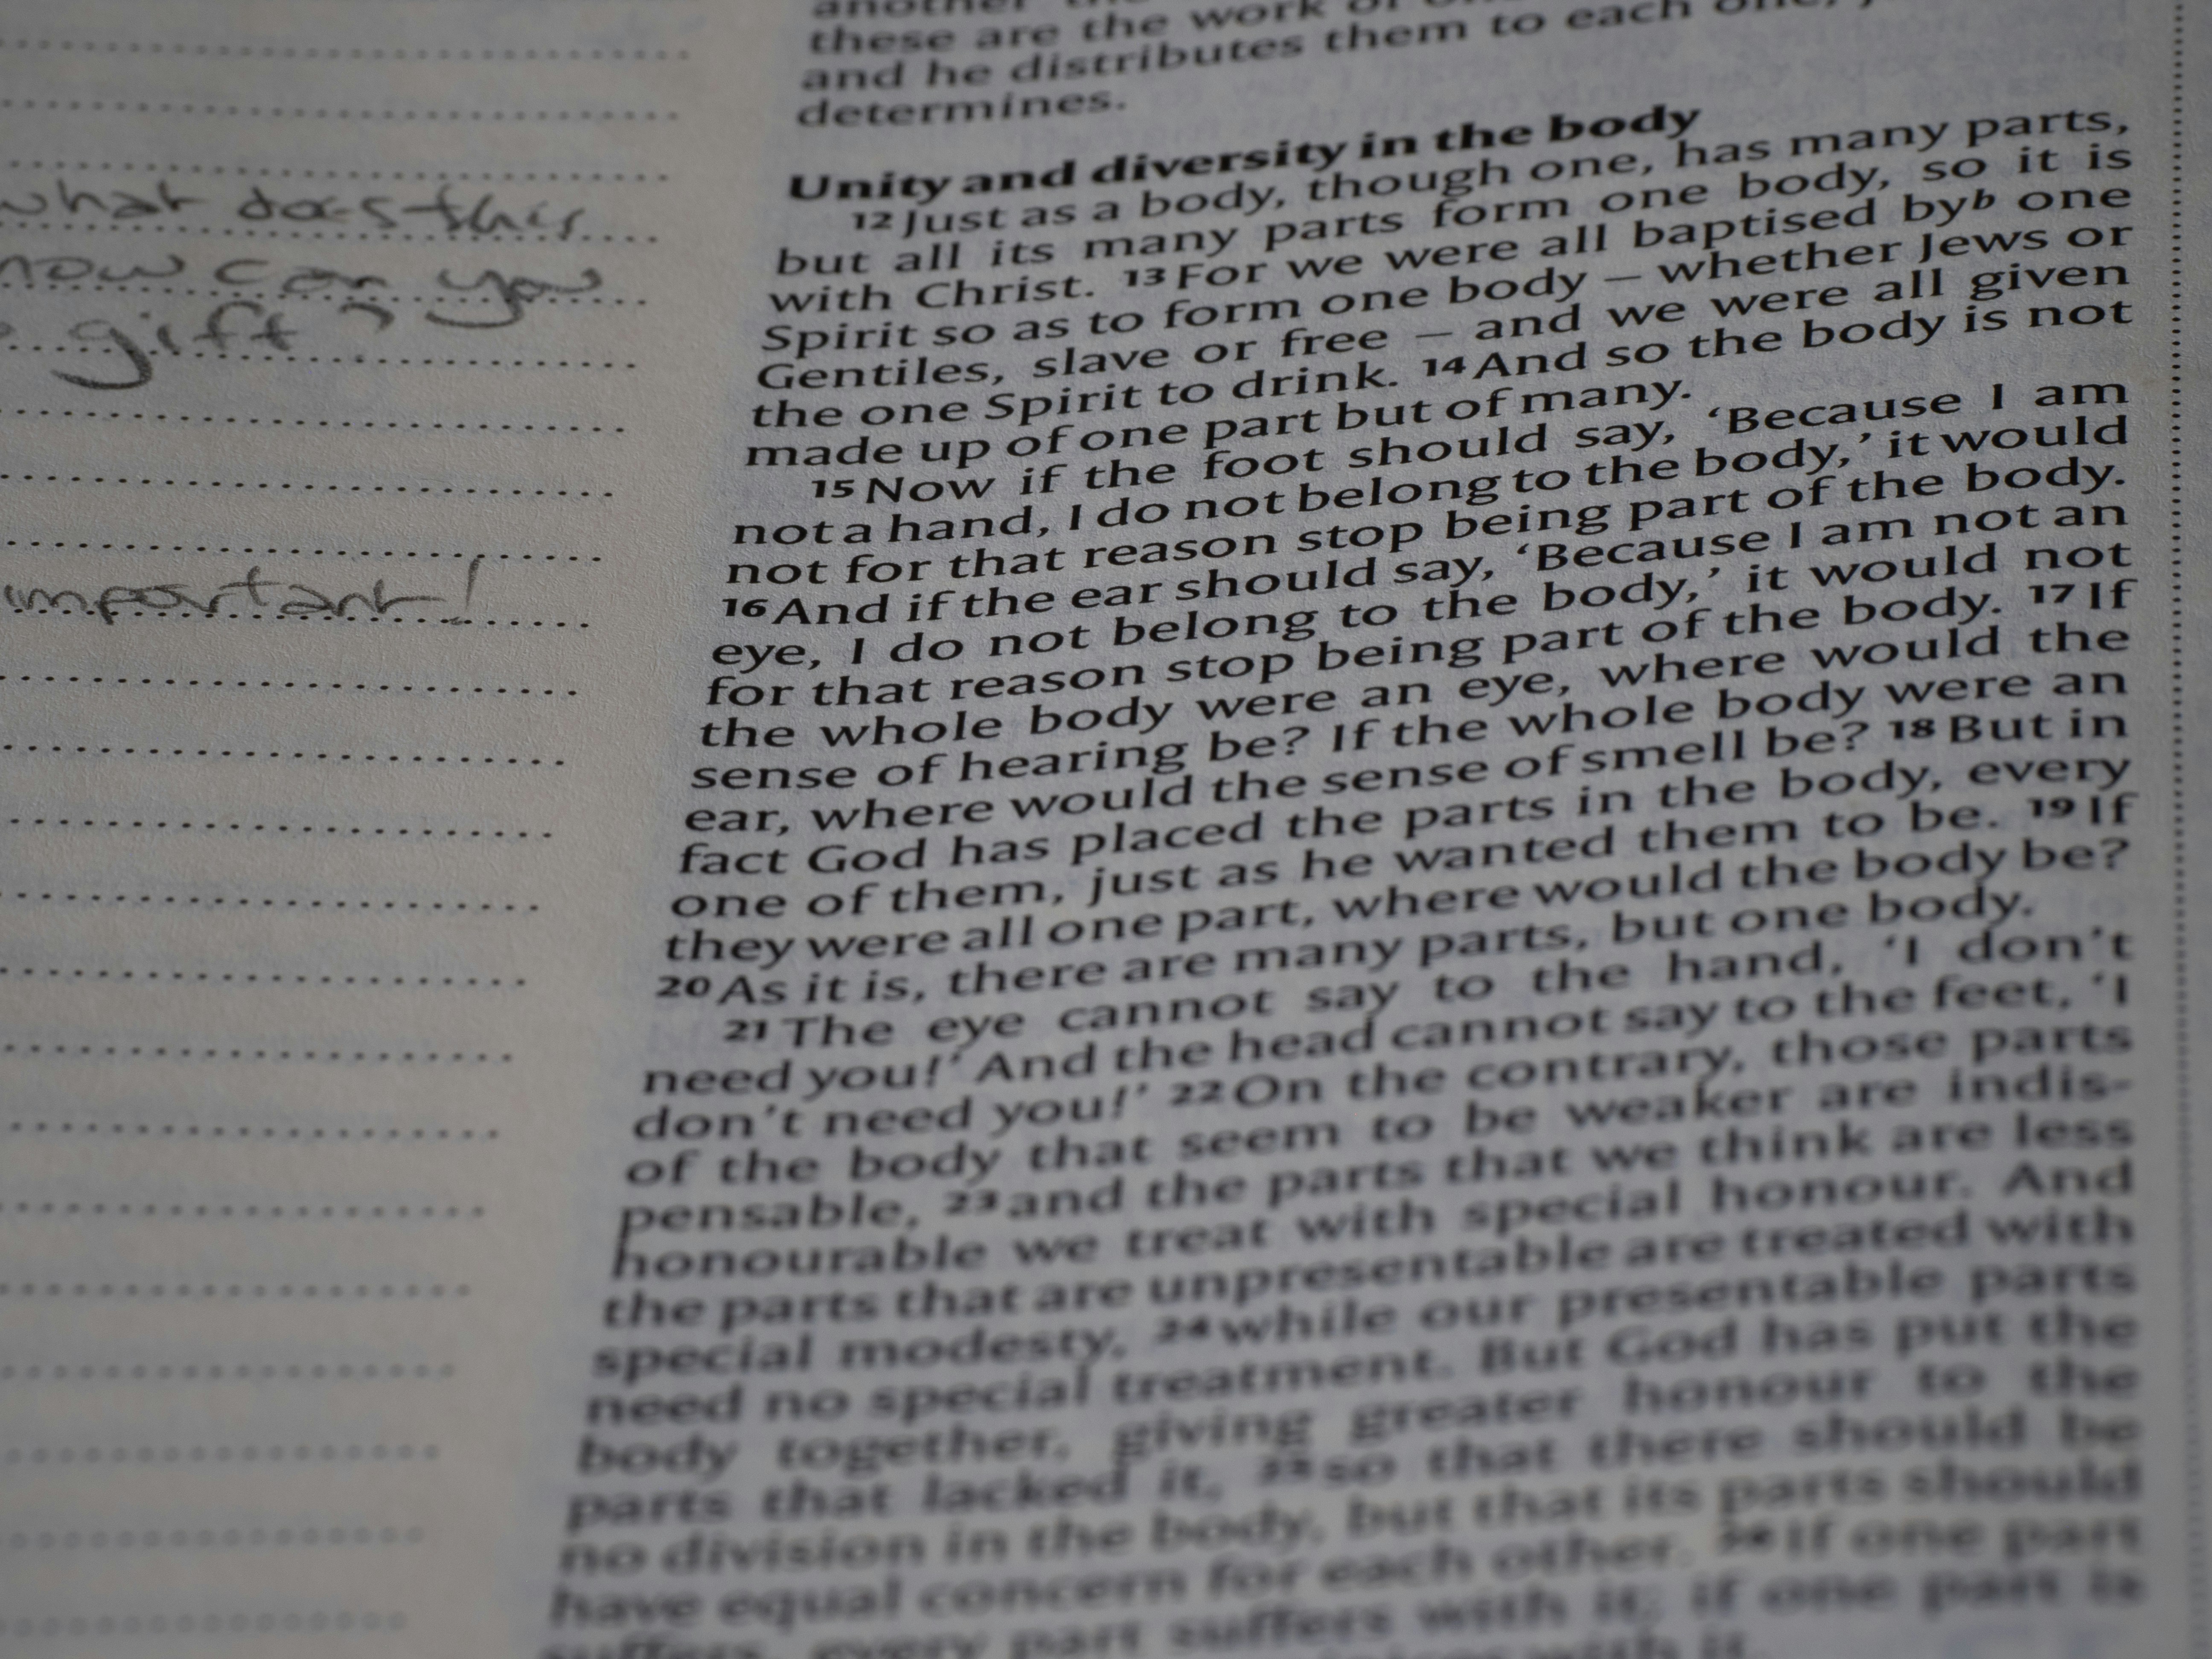 what does this
now can you
gift ?
important!
another
these are the work of
and he distributes them to each one,
determines.
Unity and diversity in the body
12 Just as a body, though one, has many parts,
but all its many parts form one body, so it is
with Christ. 13 For we were all baptised by b one
Spirit so as to form one body – whether Jews or
Gentiles, slave or free – and we were all given
the one Spirit to drink. 14 And so the body is not
made up of one part but of many.
15 Now if the foot should say, ‘Because I am
not a hand, I do not belong to the body,’ it would
not for that reason stop being part of the body.
16 And if the ear should say, ‘Because I am not an
eye, I do not belong to the body,’ it would not
for that reason stop being part of the body. 17 If
the whole body were an eye, where would the
sense of hearing be? If the whole body were an
ear, where would the sense of smell be? 18 But in
fact God has placed the parts in the body, every
one of them, just as he wanted them to be. 19 If
they were all one part, where would the body be?
20 As it is, there are many parts, but one body.
21 The eye cannot say to the hand, ‘I don’t
need you!’ And the head cannot say to the feet, ‘I
don’t need you!’ 22 On the contrary, those parts
of the body that seem to be weaker are indis-
pensable, 23 and the parts that we think are less
honourable we treat with special honour. And
the parts that are unpresentable are treated with
special modesty, 24 while our presentable parts
need no special treatment. But God has put the
body together, giving greater honour to the
parts that lacked it, 25 so that there should be
no division in the body, but that its parts should
have equal concern for each other. 26 If one part
suffers, every part suffers with it; if one part is
with it.